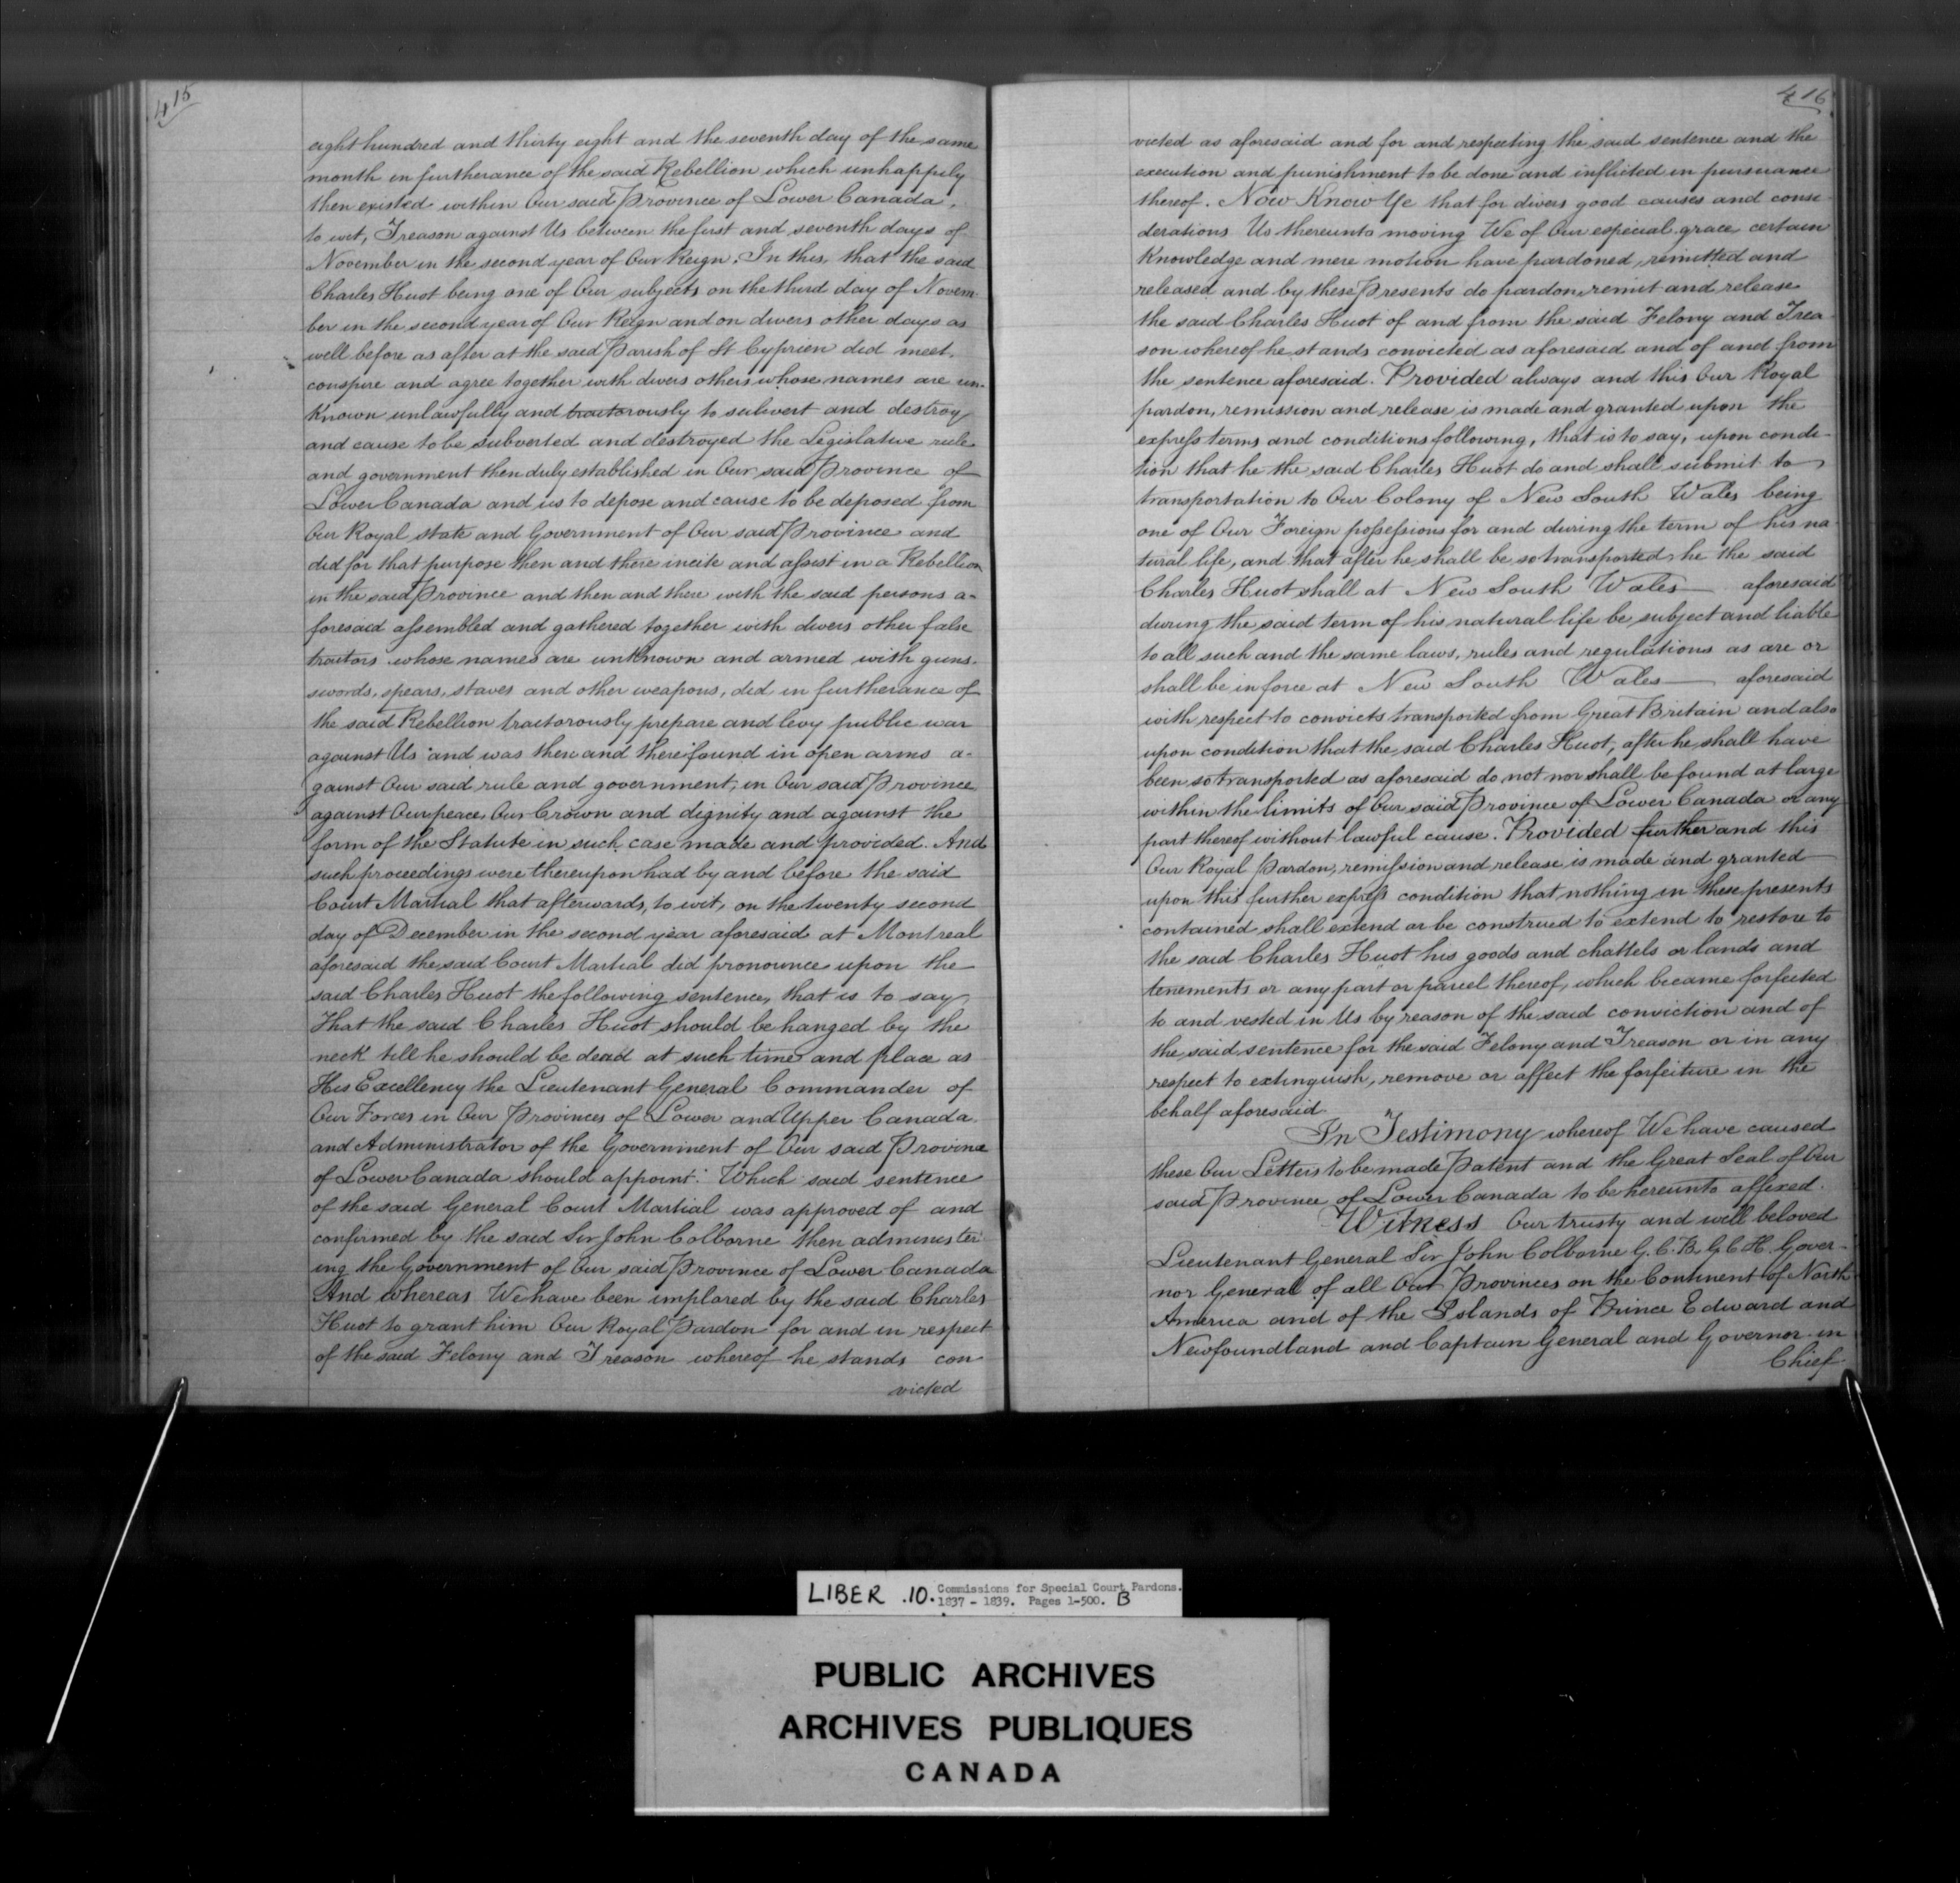 415
eight hundred and thirty eight and the seventh day of the same
month in furtherance of the said Rebellion which unhappily
then existed within Our said Province of Lower Canada,
to wit, Treason against Us between the first and seventh days of
November in the second year of Our Reign: In this, that the said
Charles Huot being one of Our subjects on the third day of Novem-
ber in the second year of Our Reign and on divers other days as
well before as after at the said Parish of St Cyprien did meet,
conspire and agree together with divers others whose names are un-
known unlawfully and traitorously to subvert and destroy
and cause to be subverted and destroyed the Legislative rule
and government then duly established in Our said Province of
Lower Canada and us to depose and cause to be deposed from
Our Royal state and Government of Our said Province and
did for that purpose then and there incite and assist in a Rebellion
in the said Province and then and there with the said persons a-
foresaid assembled and gathered together with divers other false
traitors whose names are unknown and armed with guns,
swords, spears, staves and other weapons, did in furtherance of
the said Rebellion traitorously prepare and levy public war
against Us and was then and there found in open arms a-
gainst Our said rule and government, in Our said Province
against Our peace Our Crown and dignity and against the
form of the Statute in such case made and provided. And
such proceedings were thereupon had by and before the said
Court Martial that afterwards, to wit, on the twenty second
day of December in the second year aforesaid at Montreal
aforesaid the said Court Martial did pronounce upon the
said Charles Huot the following sentence, that is to say,
That the said Charles Huot should be hanged by the
neck till he should be dead at such time and place as
His Excellency the Lieutenant General Commander of
Our Forces in Our Provinces of Lower and Upper Canada
and Administrator of the Government of Our said Province
of Lower Canada should appoint: Which said sentence
of the said General Court Martial was approved of and
confirmed by the said Sir John Colborne then administer
ing the Government of Our said Province of Lower Canada
And whereas We have been implored by the said Charles
Huot to grant him Our Royal Pardon for and in respect
of the said Felony and Treason whereof he stands con
victed
416
victed as aforesaid and for and respecting the said sentence and the
execution and punishment to be done and inflicted in pursuance
thereof. Now Know Ye that for divers good causes and consi-
derations Us thereunto moving We of Our especial grace certain
knowledge and mere motion have pardoned, remitted and
released and by these Presents do pardon, remit and release
the said Charles Huot of and from the said Felony and Trea
son whereof he stands convicted as aforesaid and of and from
the sentence aforesaid. Provided always and this Our Royal
pardon, remission and release is made and granted upon the
express terms and conditions following, that is to say, upon condi-
tion that he the said Charles Huot do and shall submit to
transportation to Our Colony of New South Wales being
one of Our Foreign possessions for and during the term of his na-
tural life, and that after he shall be so transported, he the said
Charles Huot shall at New South Wales aforesaid
during the said term of his natural life be subject and liable
to all such and the same laws, rules and regulations as are or
shall be in force at New South Wales aforesaid
with respect to convicts transported from Great Britain and also
upon condition that the said Charles Huot, after he shall have
been so transported as aforesaid do not nor shall be found at large
within the limits of Our said Province of Lower Canada or any
part thereof without lawful cause. Provided further and this
Our Royal Pardon, remission and release is made and granted
upon this further express condition that nothing in these presents
contained shall extend or be construed to extend to restore to
the said Charles Huot his goods and chattels or lands and
tenements or any part or parcel thereof, which became forfeited
to and vested in Us by reason of the said conviction and of
the said sentence for the said Felony and Treason or in any
respect to extinguish, remove or affect the forfeiture in the
behalf aforesaid
In Testimony whereof We have caused
these Our Letters to be made Patent and the Great Seal of Our
said Province of Lower Canada to be hereunto affixed.
Witness Our trusty and well beloved
Lieutenant General Sir John Colborne G. C. B. G. C. H. Gover-
nor General of all Our Provinces on the Continent of North
America and of the Islands of Prince Edward and
Newfoundland and Captain General and Governor in
Chief
LIBER .10. Commissions for Special Court Pardons.
1837 - 1839. Pages 1-500. B
PUBLIC ARCHIVES
ARCHIVES PUBLIQUES
CANADA